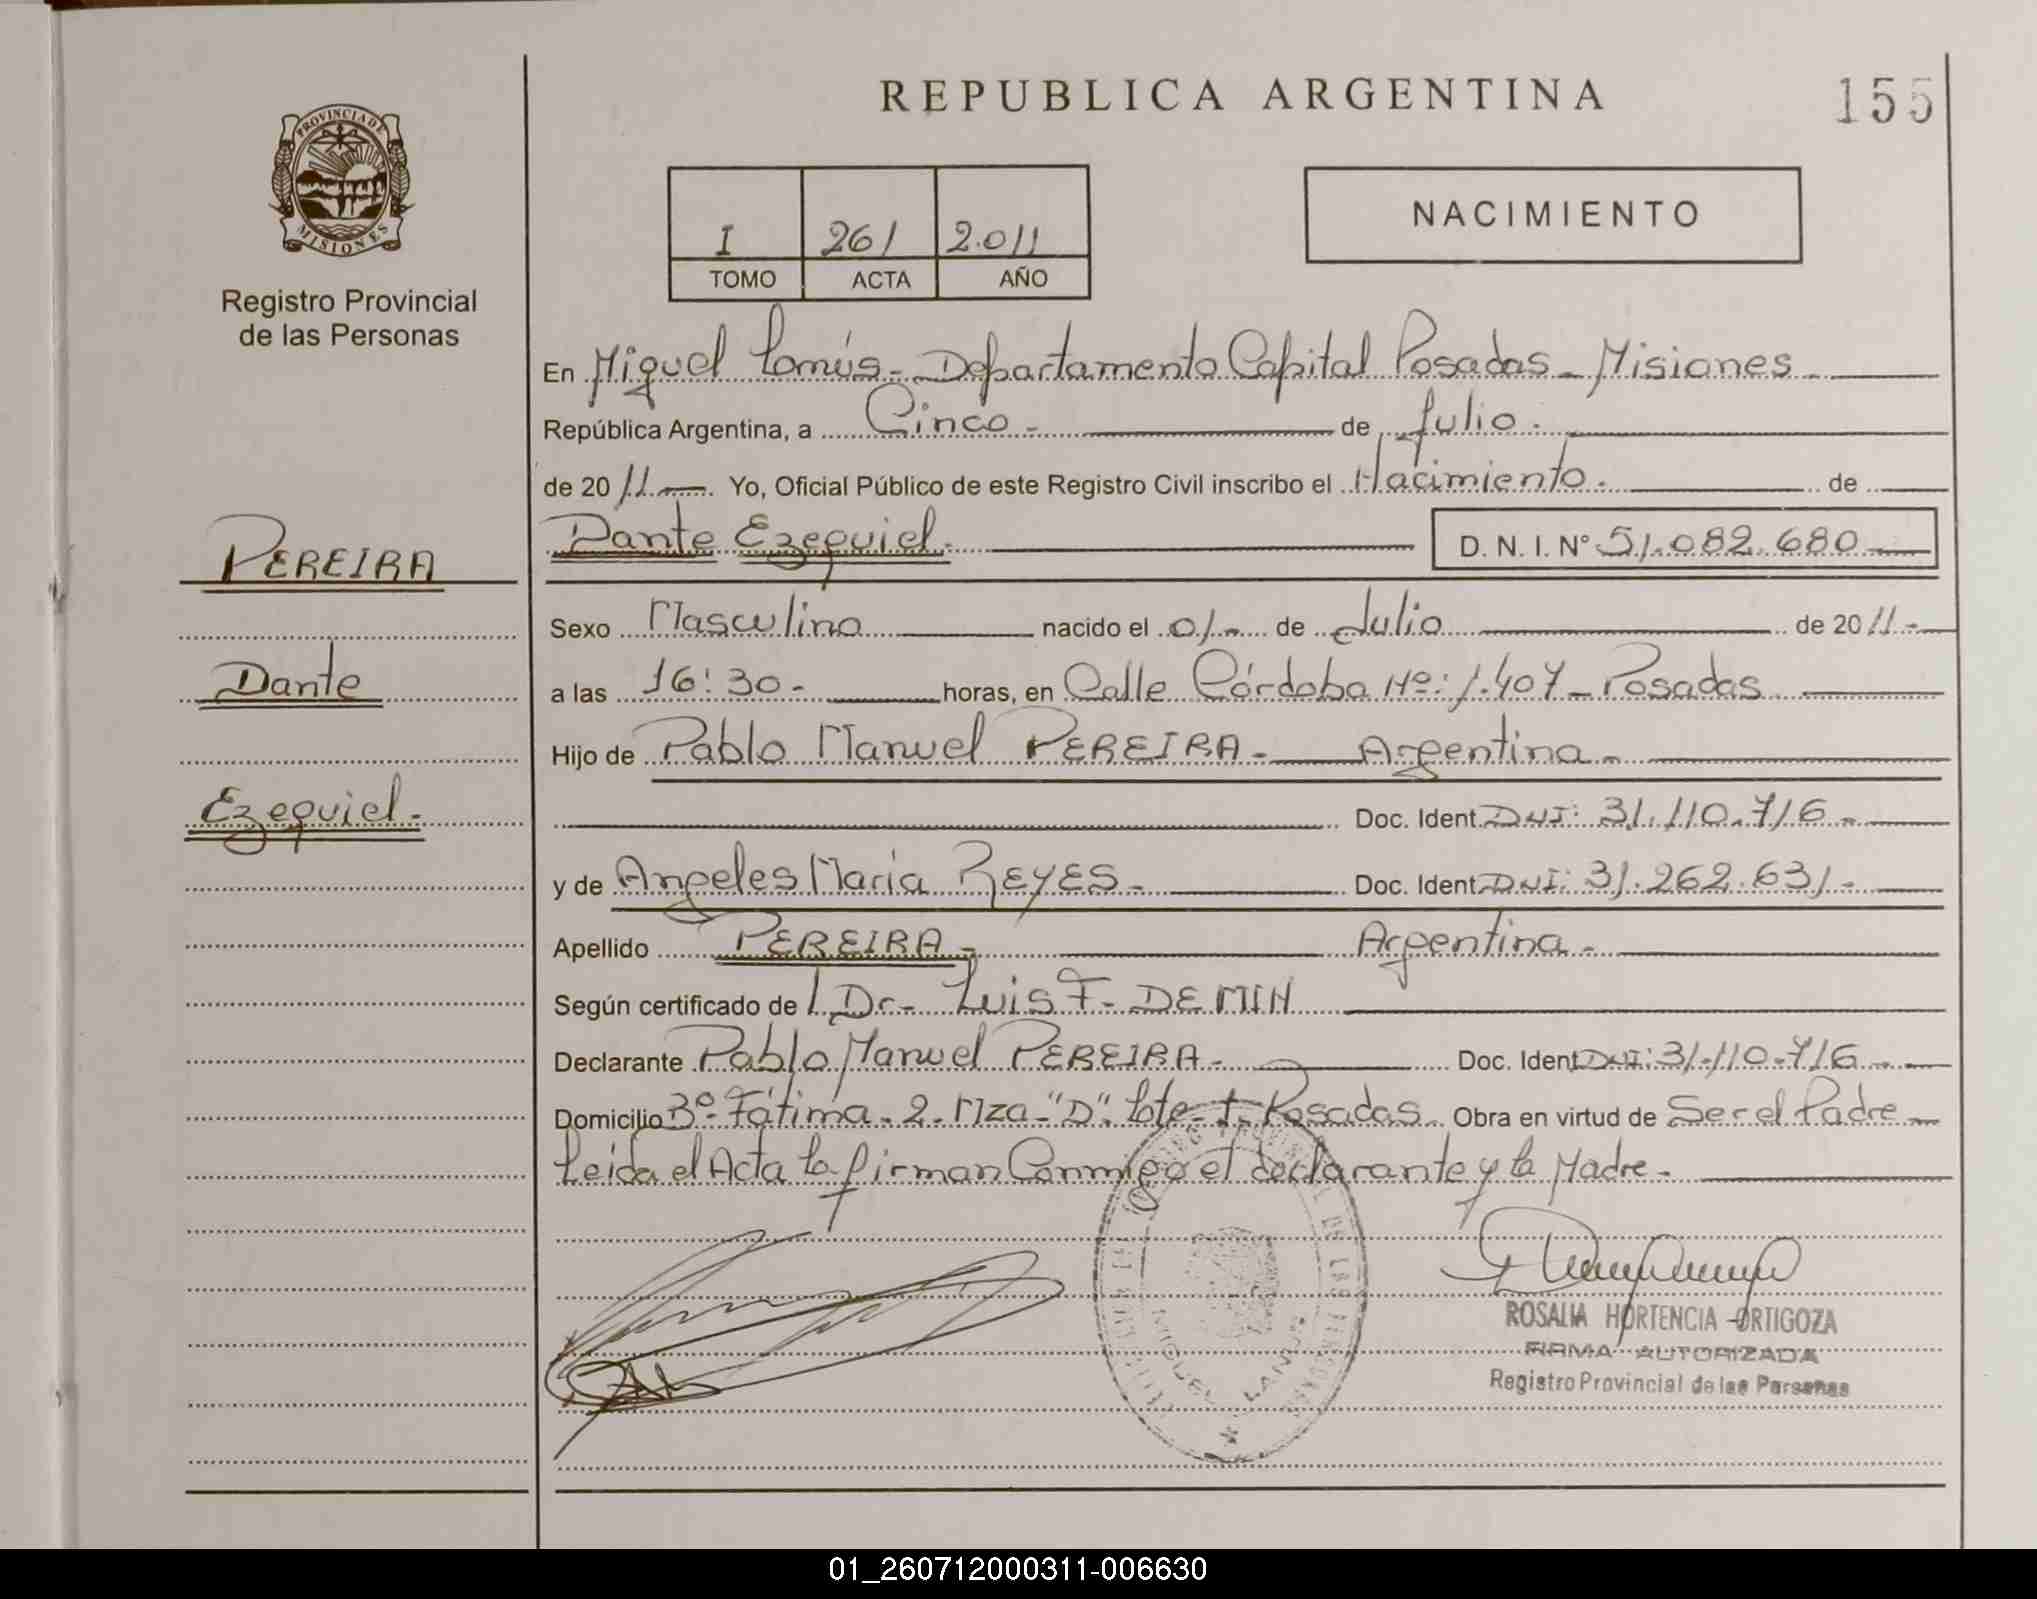 REPUBLICA ARGENTINA
155
PROVINCIA DE
MISIONES
Registro Provincial
de las Personas
I 261 2.011
TOMO ACTA AÑO
NACIMIENTO
En Miguel Lanús - Departamento Capital Posadas - Misiones
República Argentina, a Cinco - de Julio.
de 2011 Yo, Oficial Público de este Registro Civil inscribo el Nacimiento. de
Dante Ezequiel. D. N. I. Nº 51.082.680
PEREIRA
Dante
Ezequiel.-
Sexo Masculino nacido el 01 - de Julio de 2011 -
a las 16:30 - horas, en Calle Córdoba Nº: 1.407 - Posadas
Hijo de Pablo Manuel PEREIRA - Argentina -
Doc. Ident. DNI: 31.110.716 -
y de Angeles María REYES - Doc. Ident. DNI: 31.262.631 -
Apellido PEREIRA - Argentina -
Según certificado de l Dr - Luis F - DEMIN
Declarante Pablo Manuel PEREIRA - Doc. Ident DNI: 31.110.716 -
Domicilio Bº - Fátima - 2 - Mza - "D". Lote - 1 - Posadas. Obra en virtud de Ser el Padre -
Leída el Acta la firman Conmigo el declarante y la Madre -
MIGUEL LANUS
ROSALIA HORTENCIA ORTIGOZA
FIRMA AUTORIZADA
Registro Provincial de las Personas
01_260712000311-006630